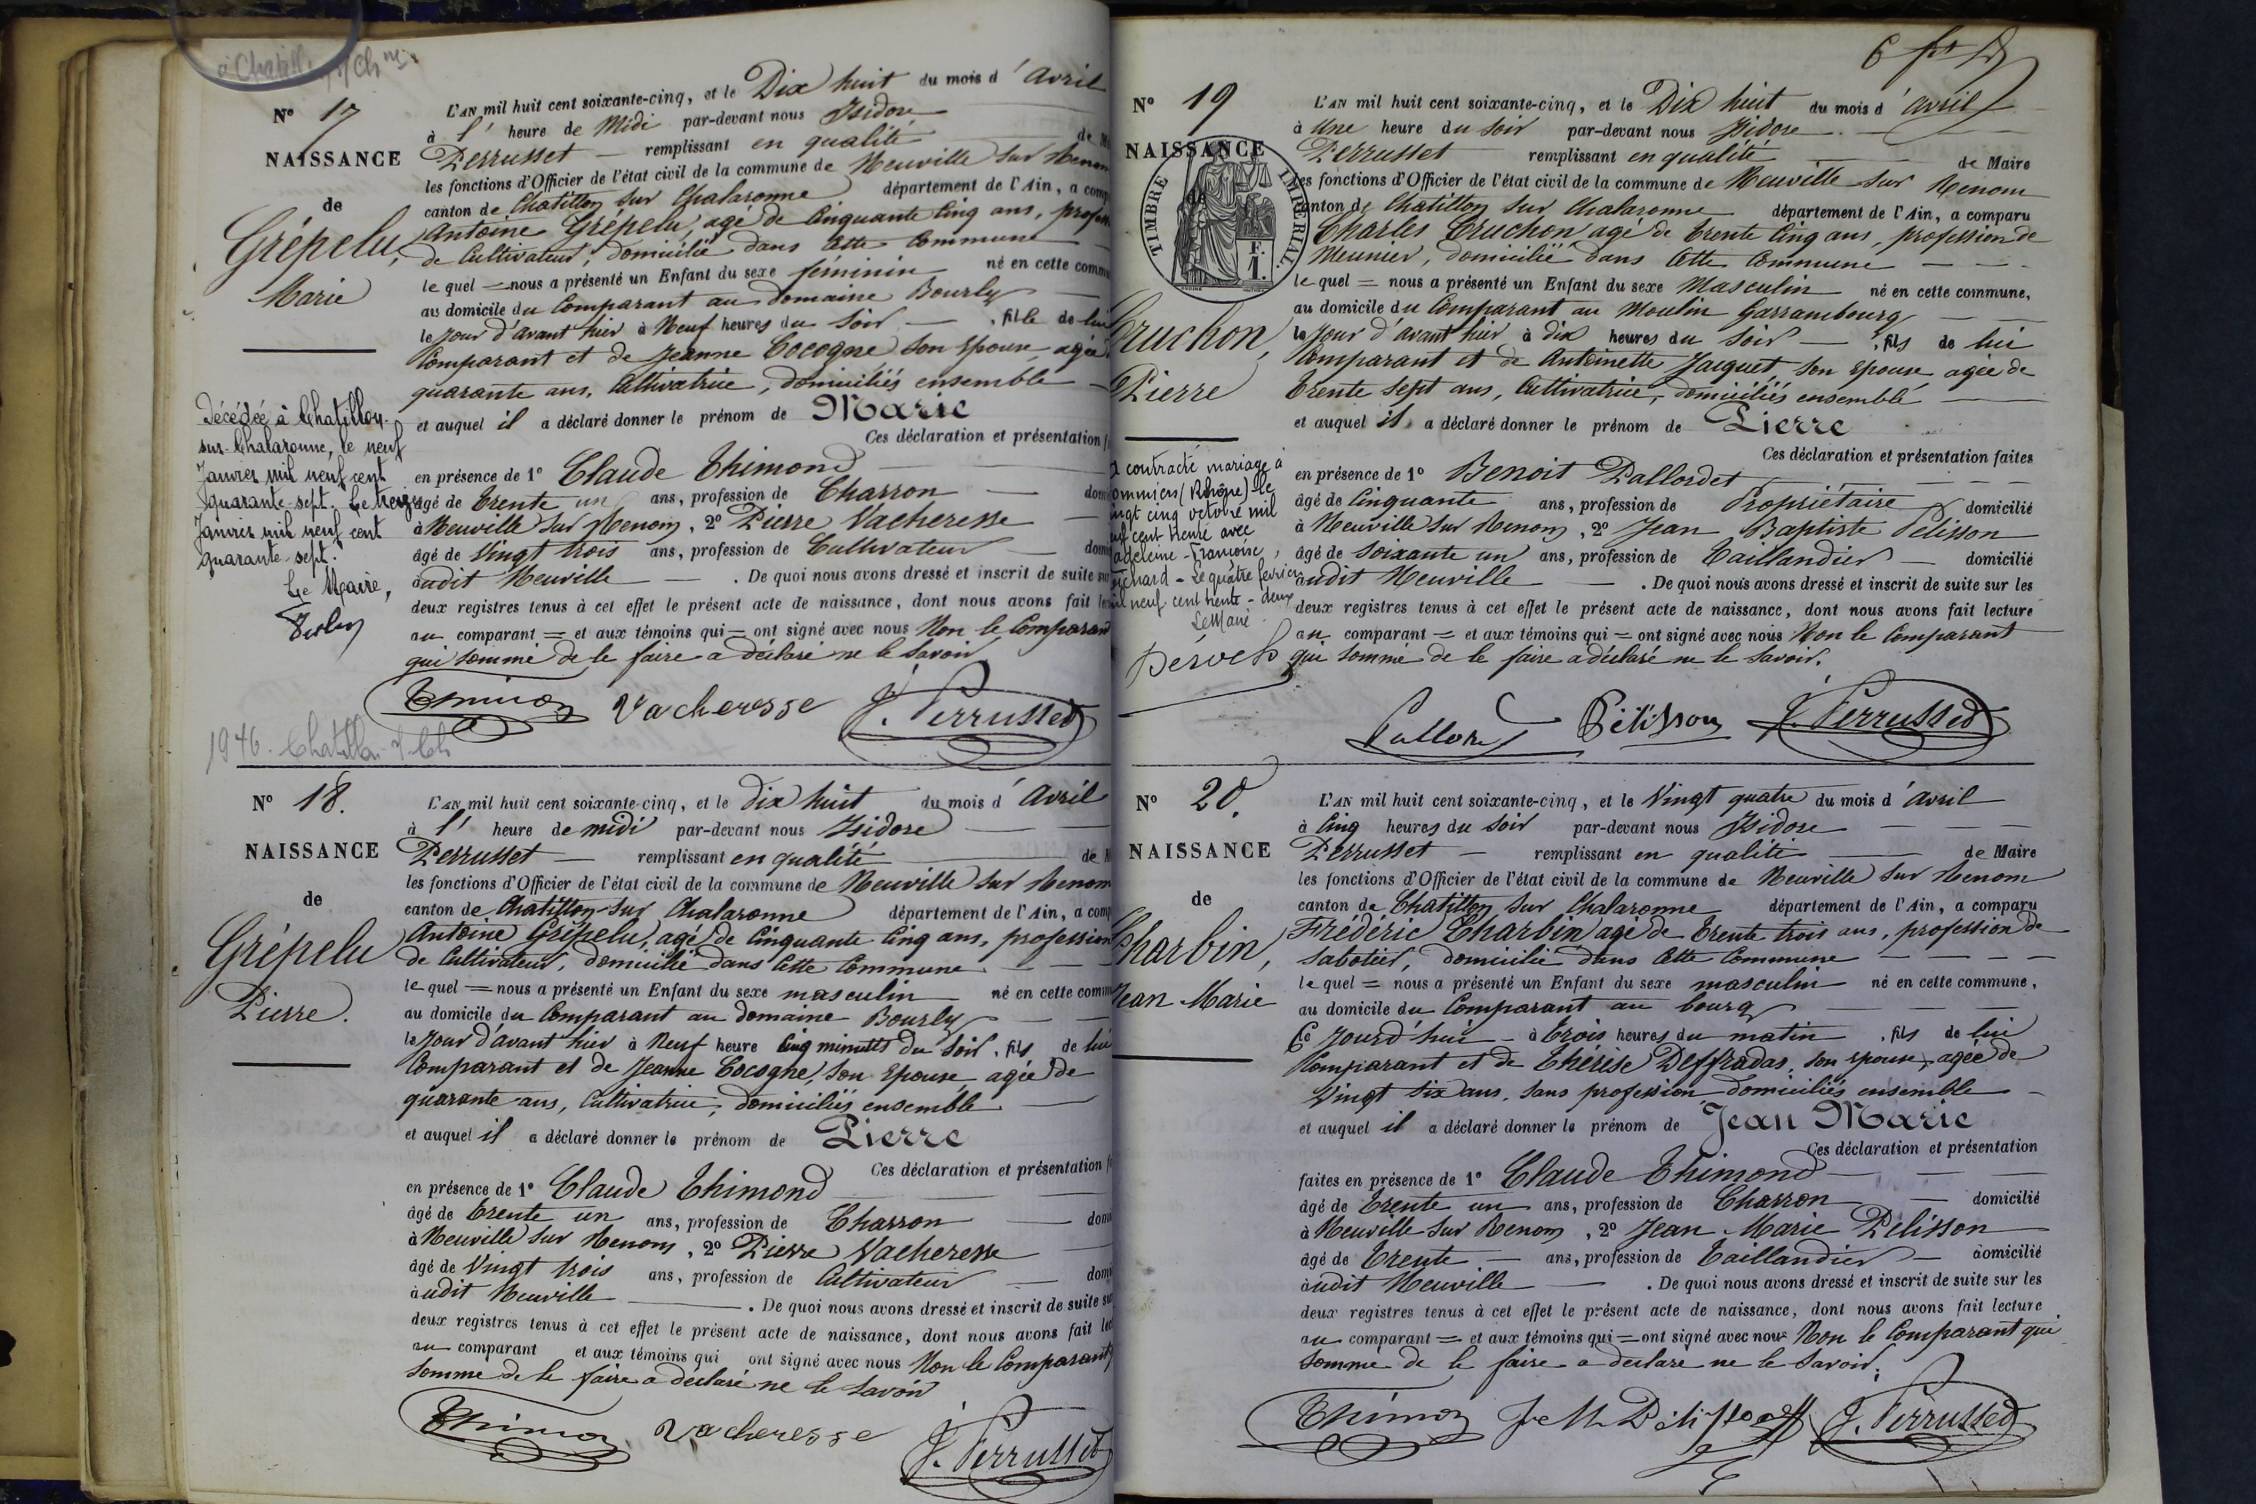 à Chatill
N° 17
NAISSANCE
de
Grépelu,
Marie
Décédée à Chatillon-
sur-Chalaronne, le neuf
Janvier mil neuf cent
quarante-sept. Le treize
Janvier mil neuf cent
quarante-sept.
Le Maire,
L'AN mil huit cent soixante-cinq, et le Dix huit du mois d'Avril
à l'heure de Midi par-devant nous Isidore
Perrusset remplissant en qualité de M
les fonctions d'Officier de l'état civil de la commune de Neuville sur Renom
canton de Chatillon sur Chalaronne département de l'Ain, a comp
Antoine Grépelu, agé de Cinquante Cinq ans, profess
de Cultivateur, domicilié dans Cette Commune
le quel = nous a présenté un Enfant du sexe féminin né en cette comm
au domicile du Comparant au domaine Bourly
le Jour d'avant hier à Neuf heures du soir , fille de lui
Comparant et de Jeanne Cocogne son Epouse, agée
quarante ans, Cultivatrice, domiciliés ensemble
et auquel il a déclaré donner le prénom de Marie
Ces déclaration et présentation f
en présence de 1° Claude Thimond
âgé de Trente un ans, profession de Charron dom
à Neuville sur Renom, 2° Pierre Vacheresse
âgé de Vingt trois ans, profession de Cultivateur dom
audit Neuville . De quoi nous avons dressé et inscrit de suite sur
deux registres tenus à cet effet le présent acte de naissance, dont nous avons fait le
au comparant = et aux témoins qui = ont signé avec nous Non le Comparant
qui sommé de le faire a déclaré ne le savoir
Thimon Vacheresse J. Perrusset
1946. Chatillon s/ Ch
N° 18.
NAISSANCE
de
Grépelu
Pierre.
L'AN mil huit cent soixante-cinq, et le dix huit du mois d'Avril
à l'heure de midi par-devant nous Isidore
Perrusset remplissant en qualité de M
les fonctions d'Officier de l'état civil de la commune de Neuville sur Renom
canton de Chatillon sur Chalaronne département de l'Ain, a comp
Antoine Grépelu, agé de Cinquante Cinq ans, profession
de Cultivateur, domicilié dans Cette Commune
le quel = nous a présenté un Enfant du sexe masculin né en cette comm
au domicile du Comparant au domaine Bourly
le Jour d'avant hier à Neuf heure Cinq minutes du Soir, fils de lui
Comparant et de Jeanne Cocogne, son Epouse, agée de
quarante ans, Cultivatrice, domiciliés ensemble
et auquel il a déclaré donner le prénom de Pierre
Ces déclaration et présentation f
en présence de 1° Claude Thimond
âgé de Trente un ans, profession de Charron dom
à Neuville sur Renom, 2° Pierre Vacheresse
âgé de Vingt trois ans, profession de Cultivateur dom
audit Neuville . De quoi nous avons dressé et inscrit de suite su
deux registres tenus à cet effet le présent acte de naissance, dont nous avons fait lec
au comparant et aux témoins qui ont signé avec nous Non le Comparant
sommé de le faire a déclaré ne le savoir
Thimon Vacheresse J. Perrusset
N° 19
NAISSANCE
de
TIMBRE IMPÉRIAL.
F.
1.
Cruchon,
Pierre
A contracté mariage à
ommiers (Rhône) le
ingt cinq octobre mil
uf cent trente avec
adeleine-Françoise,
ichard - Le quatre février
il neuf cent trente-deux
Le Maire
L'AN mil huit cent soixante-cinq, et le Dix huit du mois d'avril
à Une heure du soir par-devant nous Isidore
Perrusset remplissant en qualité de Maire
les fonctions d'Officier de l'état civil de la commune de Neuville sur Renom
canton de Chatillon sur Chalaronne département de l'Ain, a comparu
Charles Cruchon agé de Trente Cinq ans, profession de
Meunier, domicilié dans Cette Commune
le quel = nous a présenté un Enfant du sexe Masculin né en cette commune,
au domicile du Comparant au Moulin Garrambourg
le Jour d'avant hier à dix heures du soir , fils de lui
Comparant et de Antoinette Jacquet son Epouse agée de
Trente sept ans, Cultivatrice, domiciliés ensemble
et auquel il a déclaré donner le prénom de Pierre
Ces déclaration et présentation faites
en présence de 1° Benoit Pallordet
âgé de Cinquante ans, profession de Propriétaire domicilié
à Neuville sur Renom, 2° Jean Baptiste Pélisson
âgé de soixante un ans, profession de Taillandier domicilié
audit Neuville . De quoi nous avons dressé et inscrit de suite sur les
deux registres tenus à cet effet le présent acte de naissance, dont nous avons fait lecture
au comparant = et aux témoins qui = ont signé avec nous Non le Comparant
qui sommé de le faire a déclaré ne le savoir.
Pélisson J. Perrusset
N° 20.
NAISSANCE
de
Charbin,
Jean Marie
L'AN mil huit cent soixante-cinq, et le Vingt quatre du mois d'avril
à Cinq heures du soir par-devant nous Isidore
Perrusset remplissant en qualité de Maire
les fonctions d'Officier de l'état civil de la commune de Neuville sur Renom
canton de Chatillon sur Chalaronne département de l'Ain, a comparu
Frédéric Charbin agé de Trente trois ans, profession de
sabotier, domicilié dans Cette Commune
le quel = nous a présenté un Enfant du sexe masculin né en cette commune,
au domicile du Comparant au bourg
Ce Jourd'hui à Trois heures du matin , fils de lui
Comparant et de Thérèse Deffradas, son Epouse, agée de
Vingt six ans, sans profession domiciliés ensemble
et auquel il a déclaré donner le prénom de Jean Marie
Ces déclaration et présentation
faites en présence de 1° Claude Thimond
âgé de Trente un ans, profession de Charron domicilié
à Neuville sur Renom, 2° Jean Marie Pélisson
âgé de Trente ans, profession de Taillandier domicilié
audit Neuville . De quoi nous avons dressé et inscrit de suite sur les
deux registres tenus à cet effet le présent acte de naissance, dont nous avons fait lecture
au comparant = et aux témoins qui = ont signé avec nous Non le Comparant qui
sommé de le faire a déclaré ne le savoir.
Thimon J. Perrusset